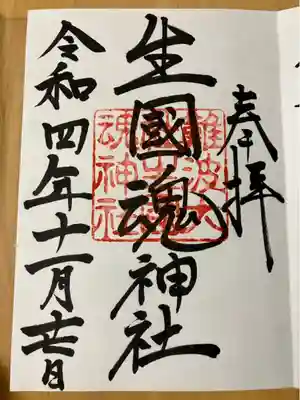 奉拝
生國魂神社
難波大
魂神社
令和四年十一月廿日